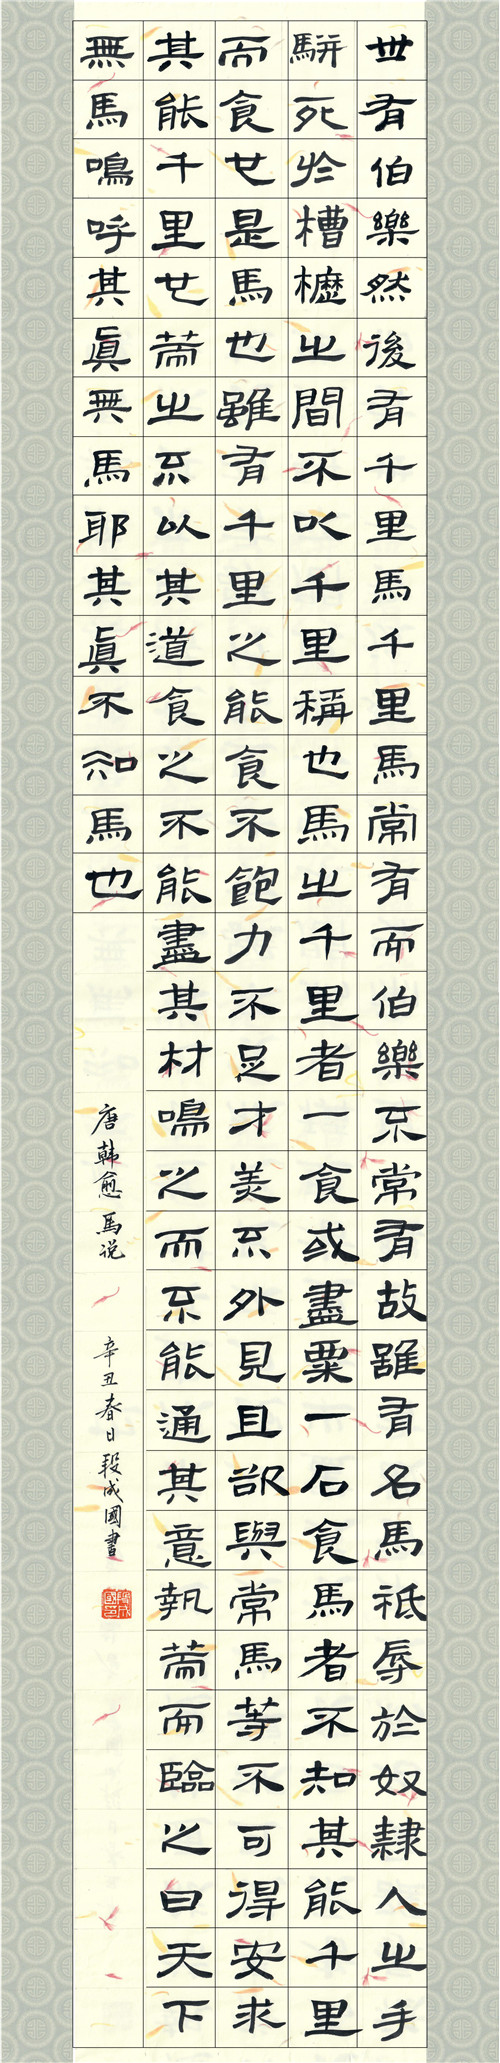 世有伯樂然後有千里馬千里馬常有而伯樂不常有故雖有名馬祗辱於奴隸人之手
駢死於槽櫪之間不以千里稱也馬之千里者一食或盡粟一石食馬者不知其能千里
而食也是馬也雖有千里之能食不飽力不足才美不外見且欲與常馬等不可得安求
其能千里也策之不以其道食之不能盡其材鳴之而不能通其意執策而臨之曰天下
無馬嗚呼其眞無馬耶其眞不知馬也
唐韓愈馬说 辛丑春日段成國書
段成國印